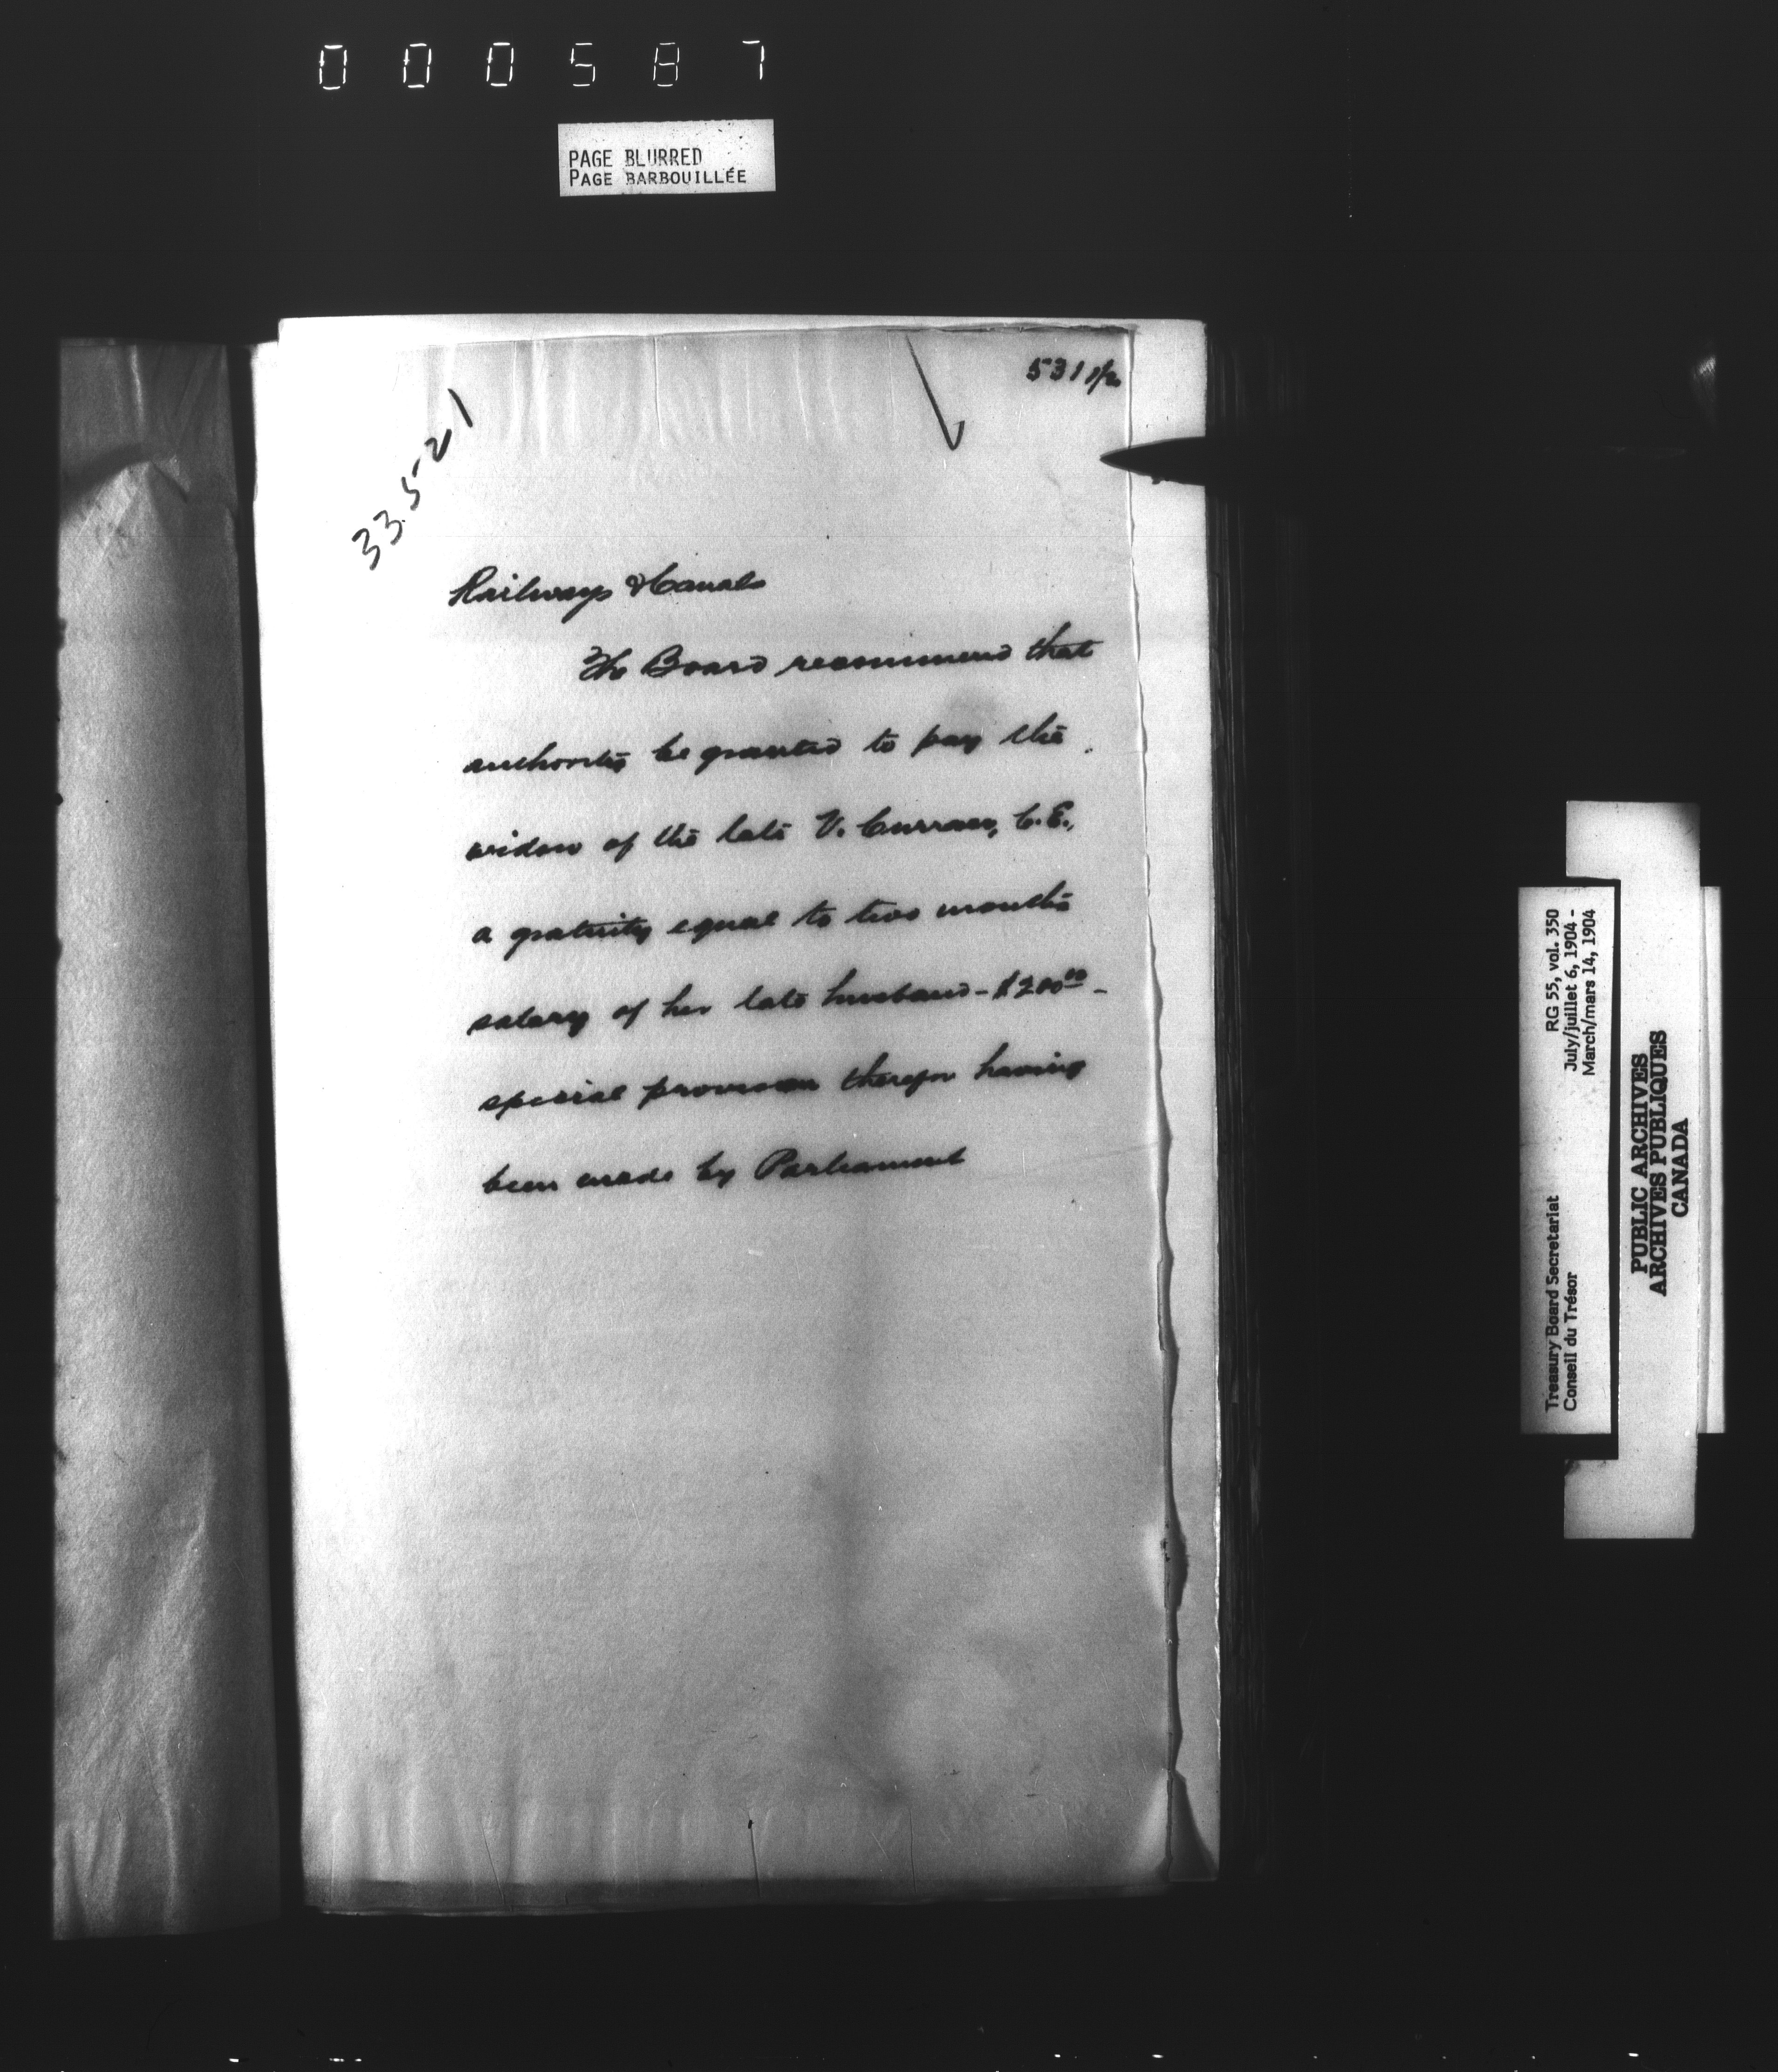 000587
PAGE BLURRED
PAGE BARBOUILLÉE
531 1/2
33.5-21
Railways & Canals
The Board recommend that
authority be granted to pay the
widow of the late V. Curran, C.E.,
a gratuity equal to two months
salary of her late husband - $200.00 -
special provision therefor having
been made by Parliament
Treasury Board Secretariat RG 55, vol. 350
Conseil du Trésor July/juillet 6, 1904 -
March/mars 14, 1904
PUBLIC ARCHIVES
ARCHIVES PUBLIQUES
CANADA